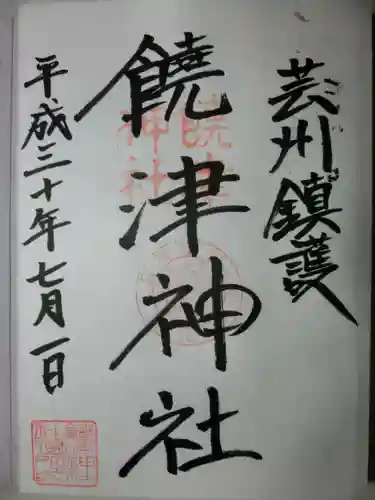 芸州鎮護
饒津神社
平成三十年七月一日
饒津
神社